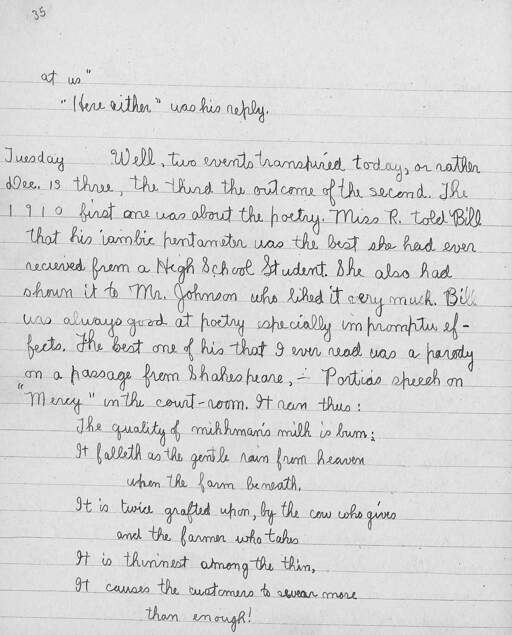 35
at us"
"Here either" was his reply.
Tuesday Well, two events transpired today, or rather
Dec. 13 three, the third the outcome of the second. The
1910 first one was about the poetry. Miss R. told Bill
that his iambic pentameter was the best she had ever
recieved from a High School Student. She also had
shown it to Mr. Johnson who liked it very much. Bill
was always good at poetry especially impromptu ef-
fects. The best one of his that I ever read was a parody
on a passage from Shakespeare, — Portias speech on
"Mercy" in the court-room. It ran thus:
The quality of milkman's milk is bum;
It falleth as the gentle rain from heaven
upon the farm beneath.
It is twice grafted upon, by the cow who gives
and the farmer who takes
It is thinnest among the thin,
It causes the customers to swear more
than enough!